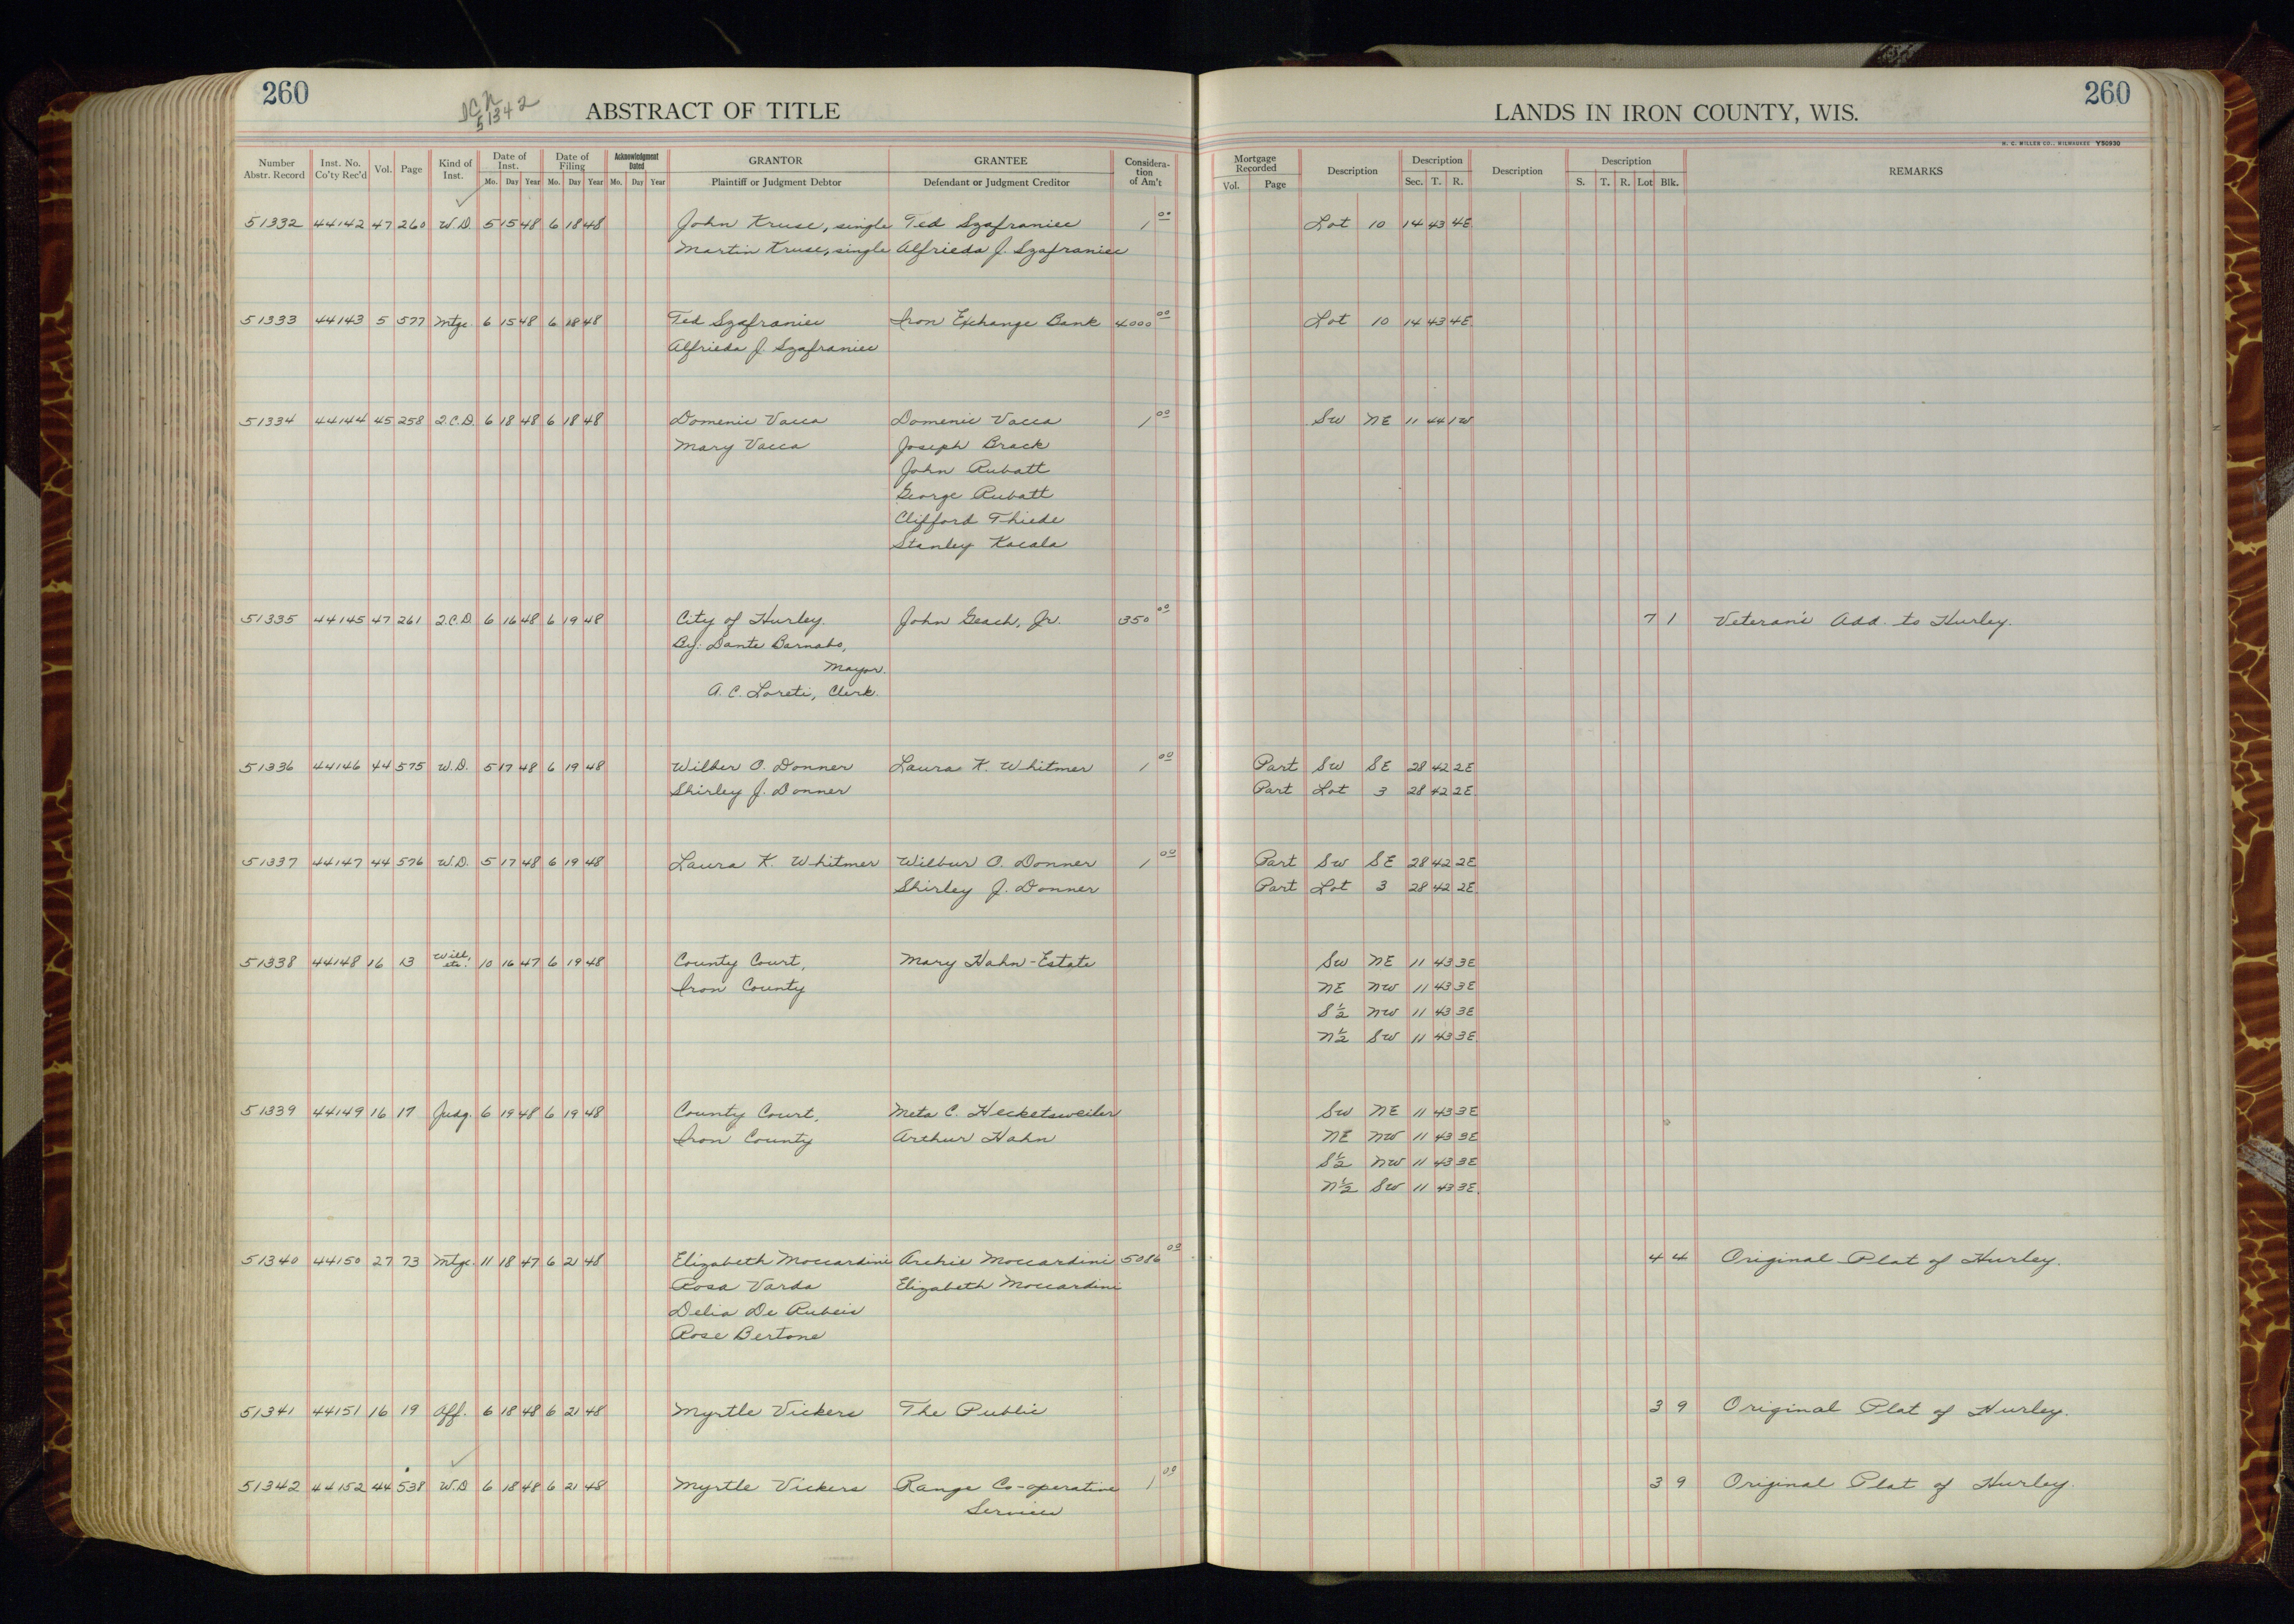 260
ICN
51342
ABSTRACT OF TITLE
LANDS IN IRON COUNTY, WIS.
260
H. C. MILLER CO., MILWAUKEE Y50930
Number Abstr. Record | Inst. No. Co'ty Rec'd | Vol. | Page | Kind of Inst. | Date of Inst. Mo. Day Year | Date of Filing Mo. Day Year | Acknowledgment Dated Mo. Day Year | GRANTOR Plaintiff or Judgment Debtor | GRANTEE Defendant or Judgment Creditor | Considera-tion of Am't | Mortgage Recorded Vol. Page | Description | Description Sec. T. R. | Description | Description S. T. R. Lot Blk. | REMARKS
51332 44142 47 260 W.D. 5 15 48 6 18 48 John Kruse, single Ted Szafraniec 1 00 Lot 10 14 43 4E
Martin Kruse, single Alfrieda J. Szafraniec
51333 44143 5 577 Mtge. 6 15 48 6 18 48 Ted Szafraniec Iron Exchange Bank 4000 00 Lot 10 14 43 4E
Alfrieda J. Szafraniec
51334 44144 45 258 Q.C.D. 6 18 48 6 18 48 Domenic Vacca Domenic Vacca 1 00 SW NE 11 44 1W
Mary Vacca Joseph Brack
John Rubatt
George Rubatt
Clifford Thiede
Stanley Kacala
51335 44145 47 261 Q.C.D. 6 16 48 6 19 48 City of Hurley. John Geach, Jr. 350 00 7 1 Veteran's Add. to Hurley.
By: Dante Barnabo,
Mayor.
A. C. Loreti, Clerk.
51336 44146 44 575 W.D. 5 17 48 6 19 48 Wilber O. Donner Laura K. Whitmer 1 00 Part SW SE 28 42 2E
Shirley J. Donner Part Lot 3 28 42 2E
51337 44147 44 576 W.D. 5 17 48 6 19 48 Laura K. Whitmer Wilbur O. Donner 1 00 Part SW SE 28 42 2E
Shirley J. Donner Part Lot 3 28 42 2E
51338 44148 16 13 Will, etc. 10 16 47 6 19 48 County Court, Mary Hahn-Estate SW NE 11 43 3E
Iron County NE NW 11 43 3E
S½ NW 11 43 3E
N½ SW 11 43 3E
51339 44149 16 17 Judg. 6 19 48 6 19 48 County Court, Meta C. Hecketsweiler SW NE 11 43 3E
Iron County Arthur Hahn NE NW 11 43 3E
S½ NW 11 43 3E
N½ SW 11 43 3E
51340 44150 27 73 Mtge. 11 18 47 6 21 48 Elizabeth Moccardini Archie Moccardini 5086 00 4 4 Original Plat of Hurley.
Rosa Varda Elizabeth Moccardini
Delia De Rubeis
Rose Bertone
51341 44151 16 19 Aff. 6 18 48 6 21 48 Myrtle Vickers The Public 3 9 Original Plat of Hurley.
51342 44152 44 538 W.D 6 18 48 6 21 48 Myrtle Vickers Range Co-operative 1 00 3 9 Original Plat of Hurley.
Services